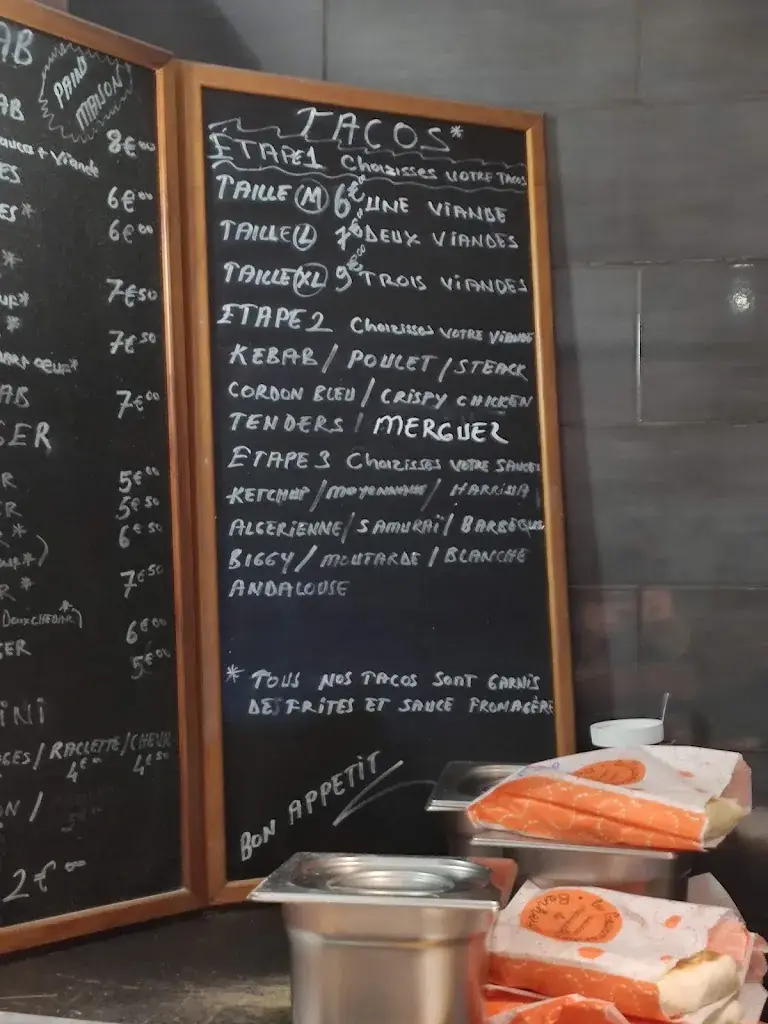 AB
PAIN
MAISON
AB
8€00
sauces + Viande
ES
6€00
ES*
6€00
*
7€50
*
7€50
oeuf*
AB
7€00
GER
R
5€00
ER
5€50
R*
6€50
R*
7€50
Deux CHEDAR*)
6€00
GER
5€00
INI
GES / RACLETTE / CHEV
4€00
4€50
ON /
2€00
TACOS*
ETAPE 1 Choizisses VOTRE TACOS
TAILLE (M) 6€00 UNE VIANDE
TAILLE (L) 7€00 DEUX VIANDES
TAILLE (XL) 9€00 TROIS VIANDES
ETAPE 2 Choizisses VOTRE VIANDE
KEBAB / POULET / STEACK
CORDON BLEU / CRISPY CHICKEN
TENDERS / MERGUEZ
ETAPE 3 Choizisses VOTRE SAUCE
KETCHUP / MAYONNAISE / HARRISSA
ALGERIENNE / SAMURAÏ / BARBEQUE
BIGGY / MOUTARDE / BLANCHE
ANDALOUSE
* TOUS NOS TACOS SONT GARNIS
DE FRITES ET SAUCE FROMAGÈRE
BON APPETIT